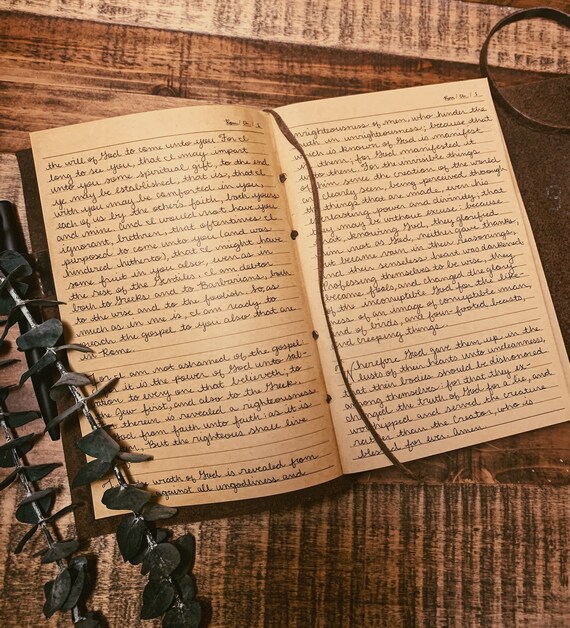 Rom / Ch. / 1
the will of God to come unto you. For I
long to see you, that I may impart
unto you some spiritual gift, to the end
ye may be established; that is, that I
with you may be comforted in you,
each of us by the other's faith, both yours
and mine. And I would not have you
ignorant, brethren, that oftentimes I
purposed to come unto you (and was
hindered hitherto), that I might have
some fruit in you also, even as in
the rest of the Gentiles. I am debtor
both to Greeks and to Barbarians, both
to the wise and to the foolish. So, as
much as in me is, I am ready to
preach the gospel to you also that are
in Rome.
For I am not ashamed of the gospel
for it is the power of God unto sal-
vation to every one that believeth; to
the Jew first, and also to the Greek.
therein is revealed a righteousness
God from faith unto faith as it is
But the righteous shall live
wrath of God is revealed from
against all ungodliness and
Rom / Ch. / 1
unrighteousness of men, who hinder the
truth in unrighteousness; because that
which is known of God is manifest
in them; for God manifested it
unto them. For the invisible things
of him since the creation of the world
are clearly seen, being perceived through
the things that are made, even his
everlasting power and divinity; that
they may be without excuse: because
that, knowing God, they glorified
him not as God, neither gave thanks;
but became vain in their reasonings,
and their senseless heart was darkened.
Professing themselves to be wise, they
became fools, and changed the glory
of the incorruptible God for the like-
ness of an image of corruptible man,
and of birds, and four-footed beasts,
and creeping things.
Wherefore God gave them up in the
lusts of their hearts unto uncleanness,
that their bodies should be dishonored
among themselves: for that they ex-
changed the truth of God for a lie, and
worshipped and served the creature
rather than the Creator, who is
blessed for ever. Amen.